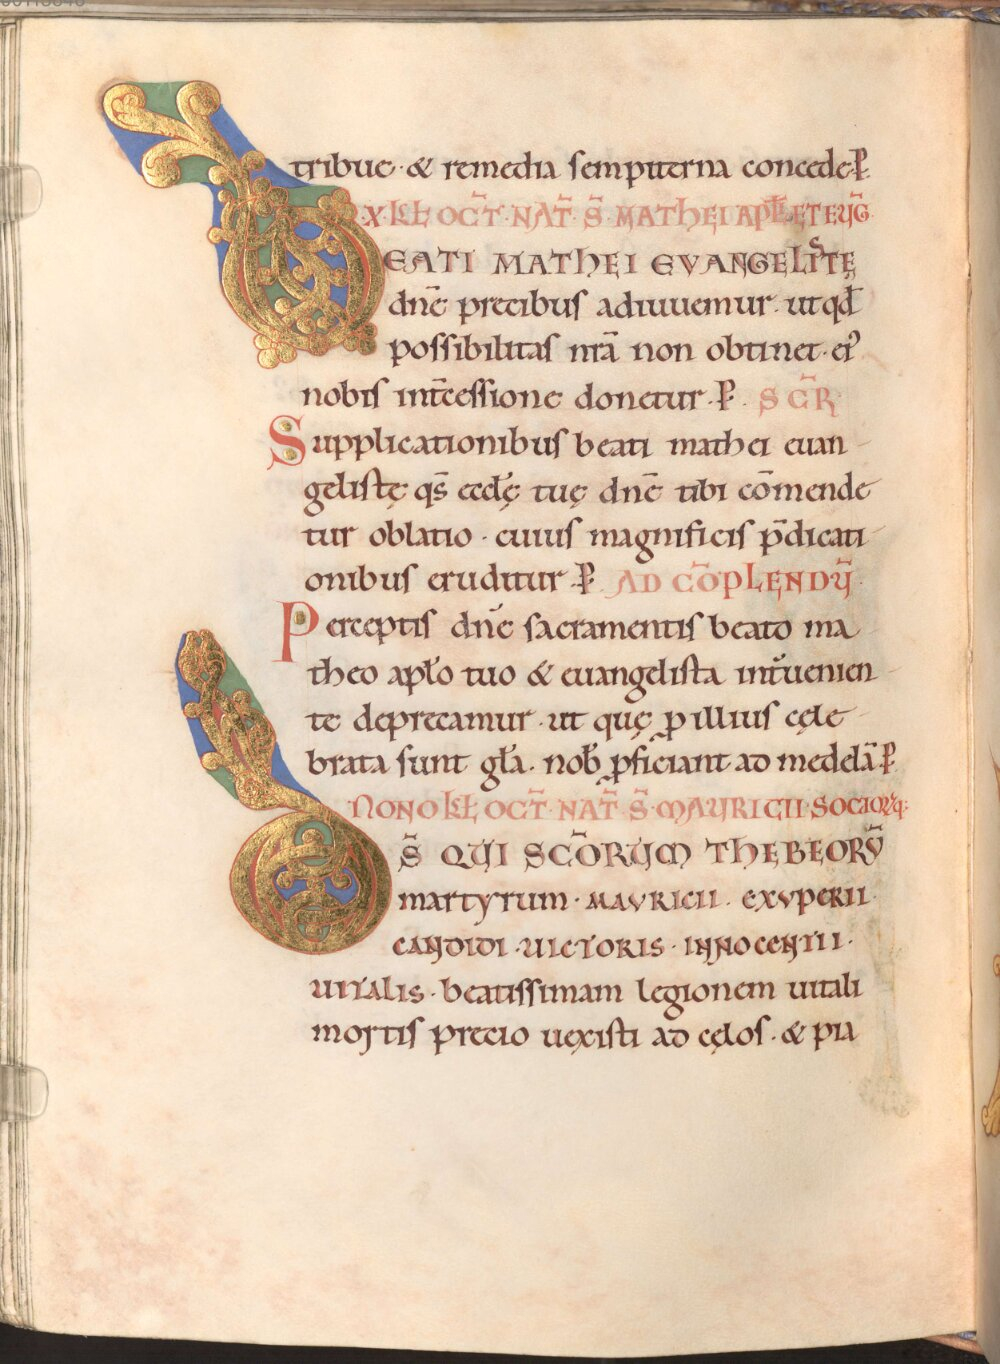 tribue · & remedia sempiterna concede · P̱
X KŁ OCT̄ · NAT̄ · S̄ · MATHEI APŁI ET EUḠ
BEATI MATHEI EVANGELISTĘ
dnē precibus adiuuemur · ut qđ
possibilitas nr̄a non obtinet · ei᾽
nobis int̄cessione donetur · P̱ · SEC̄R
Supplicationibus beati mathei euan
gelistę qs̄ ęccłę tuę dnē tibi cōmende
tur oblatio · cuius magnificis p̄dicati
onibus eruditur · P̱ · AD CŌPLENDŪ
Perceptis dnē sacramentis beato ma
theo apło tuo & euangelista int̄uenien
te deprecamur · ut quę ꝑ illius cęle
brata sunt gła · nob̄ ꝓficiant ad medelā P̱
NONO KŁ OCT̄ · NAT̄ · S̄ · MAURICII · SOCIORŪQ:
DS̄ QUI SC̄ORUM THEBEORŪ
martyrum · MAVRICII · EXVPERII
CANDIDI · UICTORIS · INNOCENTII ·
UITALIS · beatissimam legionem uitali
mortis precio uexisti ad cęlos · & pia